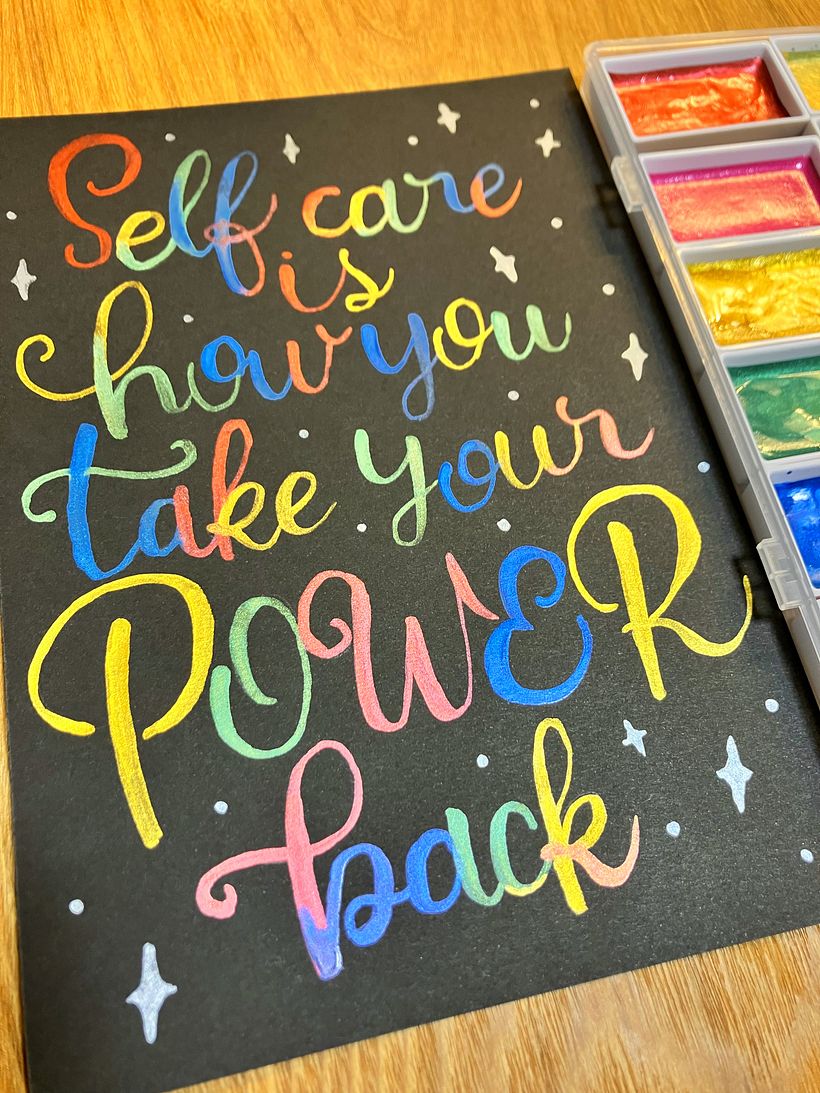 Self care
is
how you
take your
POWER
back